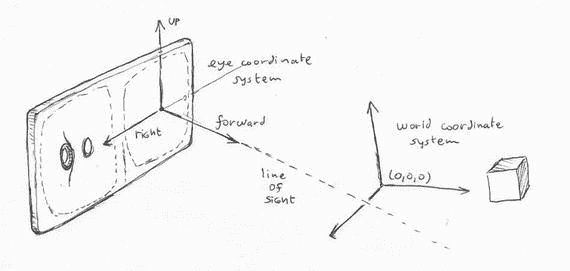 UP
eye coordinate
system
right
forward
line
of
sight
world coordinate
system
(0,0,0)